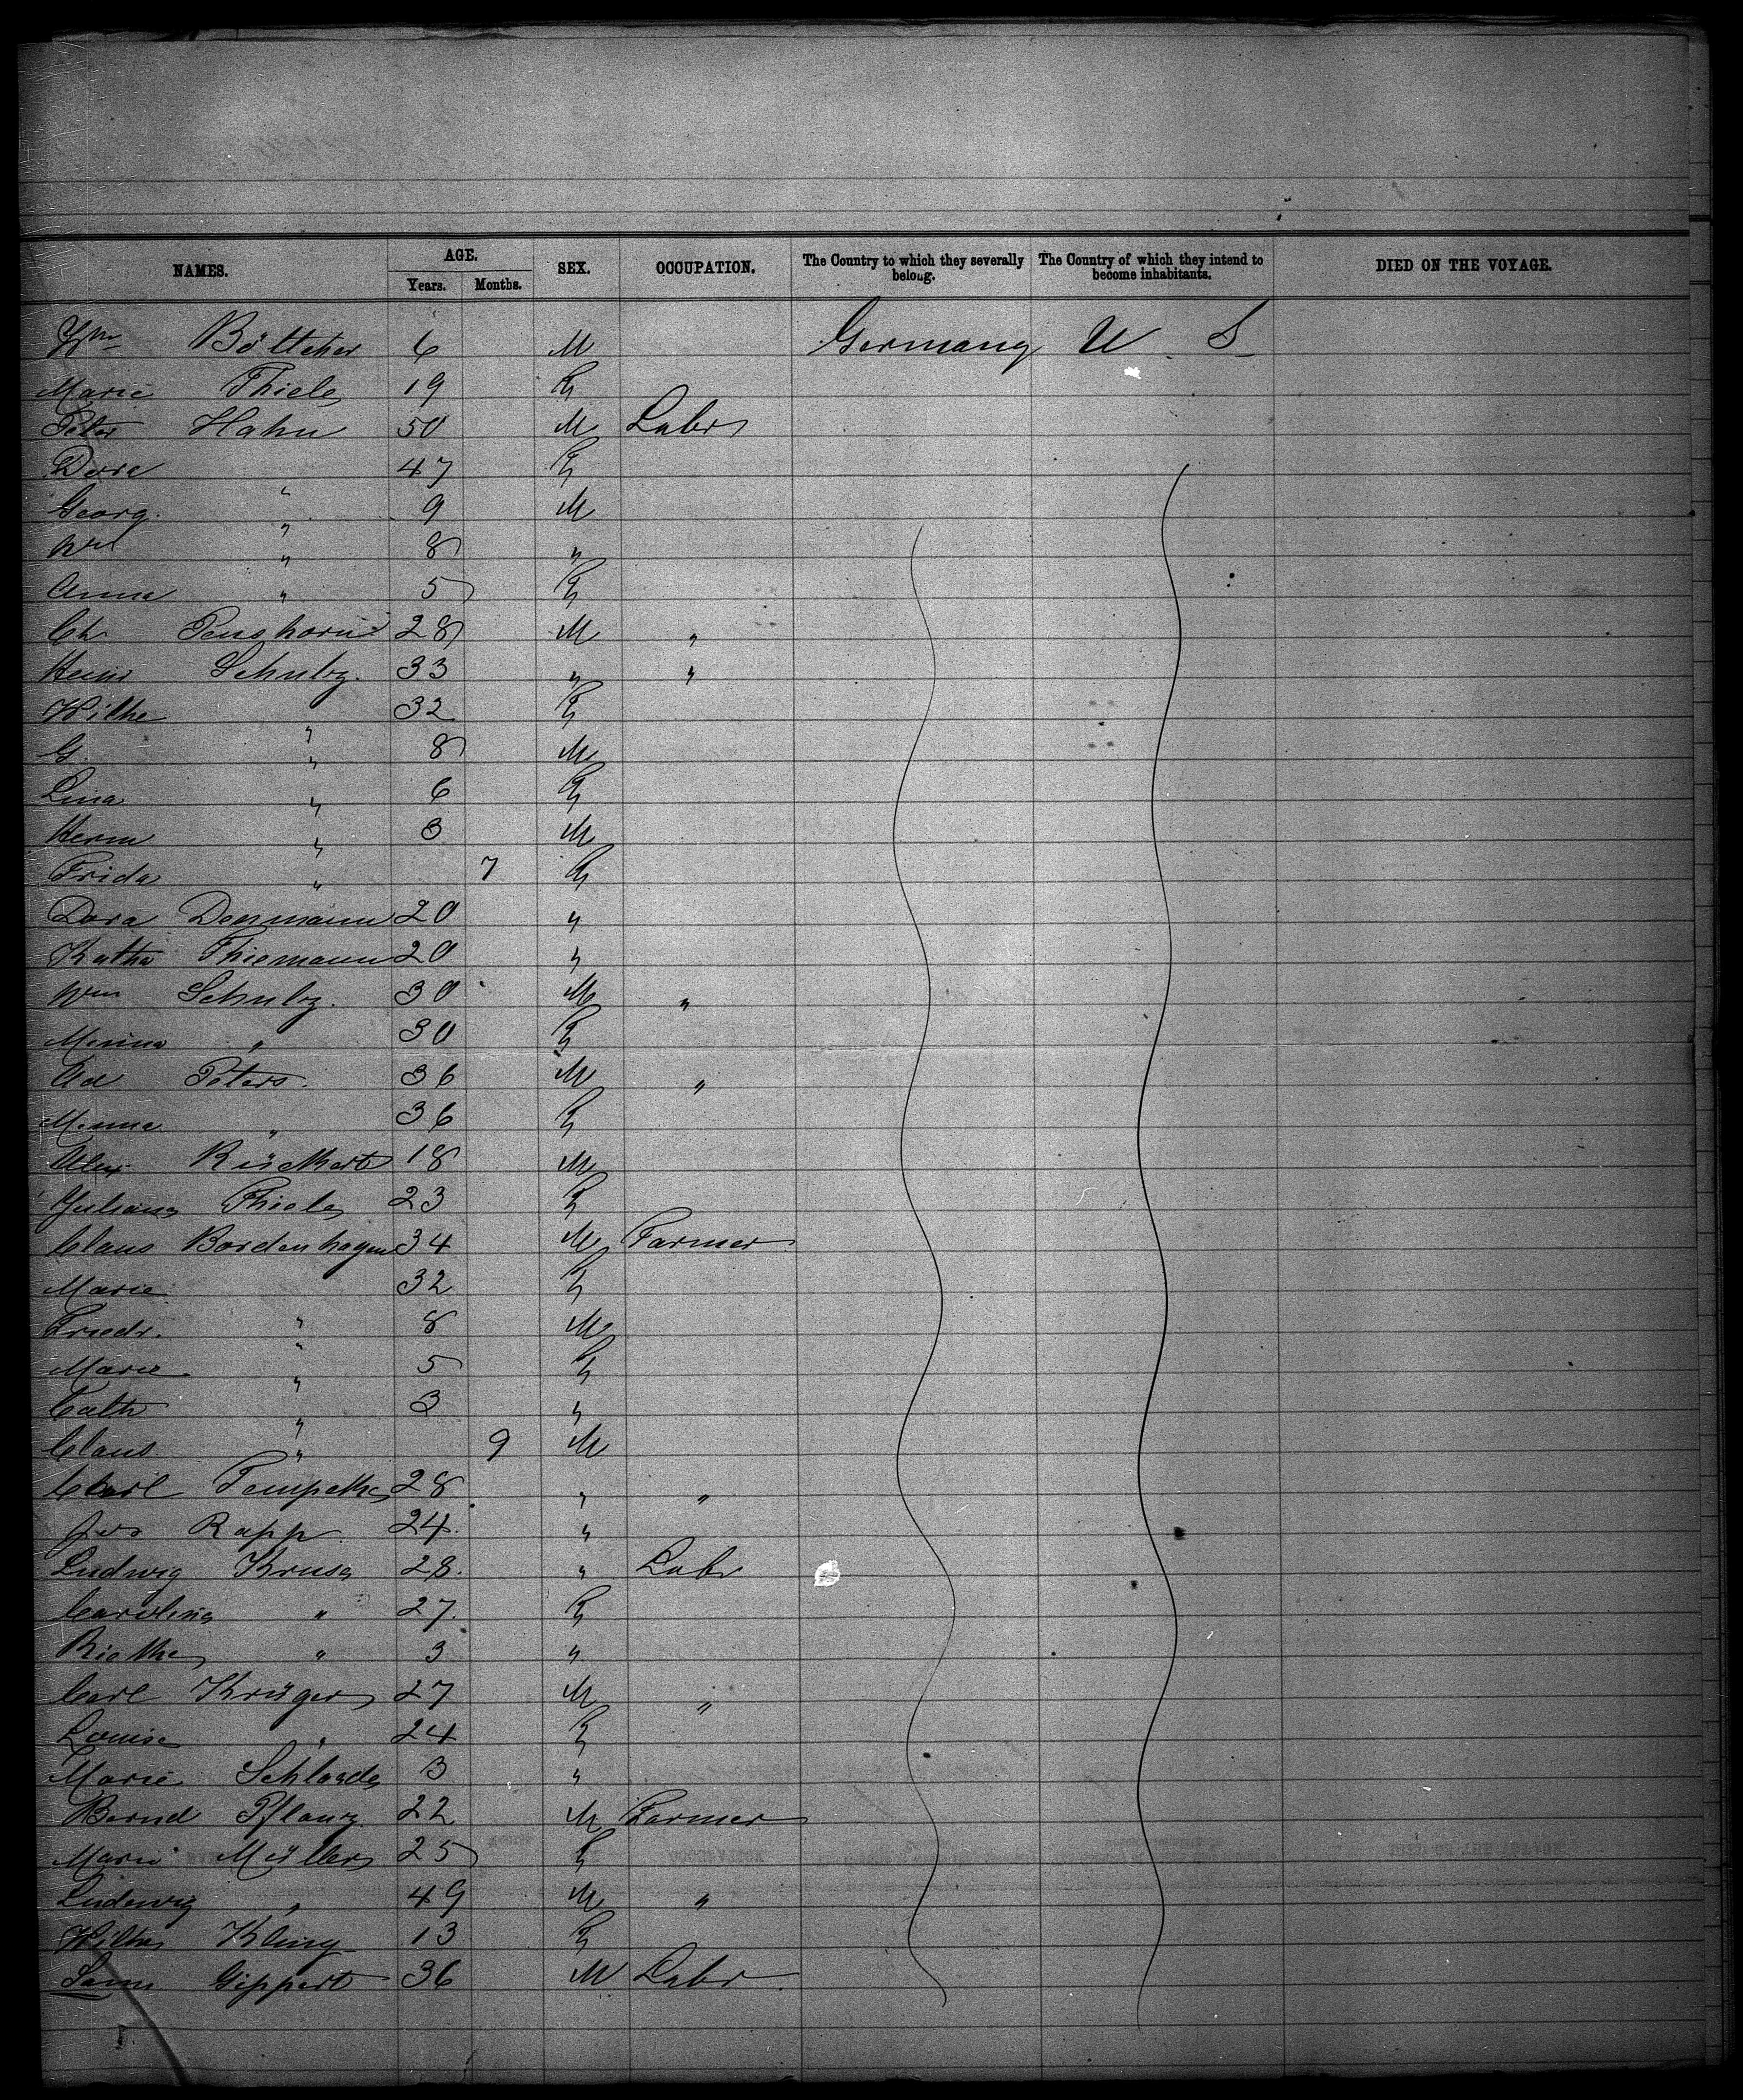 NAMES. AGE. SEX. OCCUPATION. The Country to which they severally belong. The Country of which they intend to become inhabitants. DIED ON THE VOYAGE.
Years. Months.
Wm Böttcher 6 M Germany U. S
Marie Thiele 19 F
Peter Hahn 50 M Labr
Dora " 47 F
Georg. " 9 M
Wm " 8 "
Anna " 5 F
Ch Penshorn 28 M "
Heinr Schulz. 33 " "
Wilhe " 32 F
G " 8 M
Lina " 6 F
Herm " 3 M
Frida " 7 F
Dora Doermann 20 "
Kathe Thiemann 20 "
Wm Schulz. 30 M "
Minna " 30 F
Ad Peters. 36 M "
Minna " 36 F
Alex Rückert 18 M
Juliane Thiele 23 F
Claus Bordenhagen 34 M Farmer
Marie " 32 F
Friedr. " 8 M
Marie " 5 F
Cath " 3 "
Claus " 9 M
Carl 28 " "
Jos Rapp 24. "
Ludwig Kruse 28. " Labr
Caroline " 27. F
Riekke " 3 "
Carl Krüger 27 M "
Louise " 24 F
Marie Schlaade 3 "
Bernd Pflanz 22 M Farmer
Marie Müller 25 F
Ludewig " 49 M "
Wilhe Kling 13 F
Gippert 36 M Labr